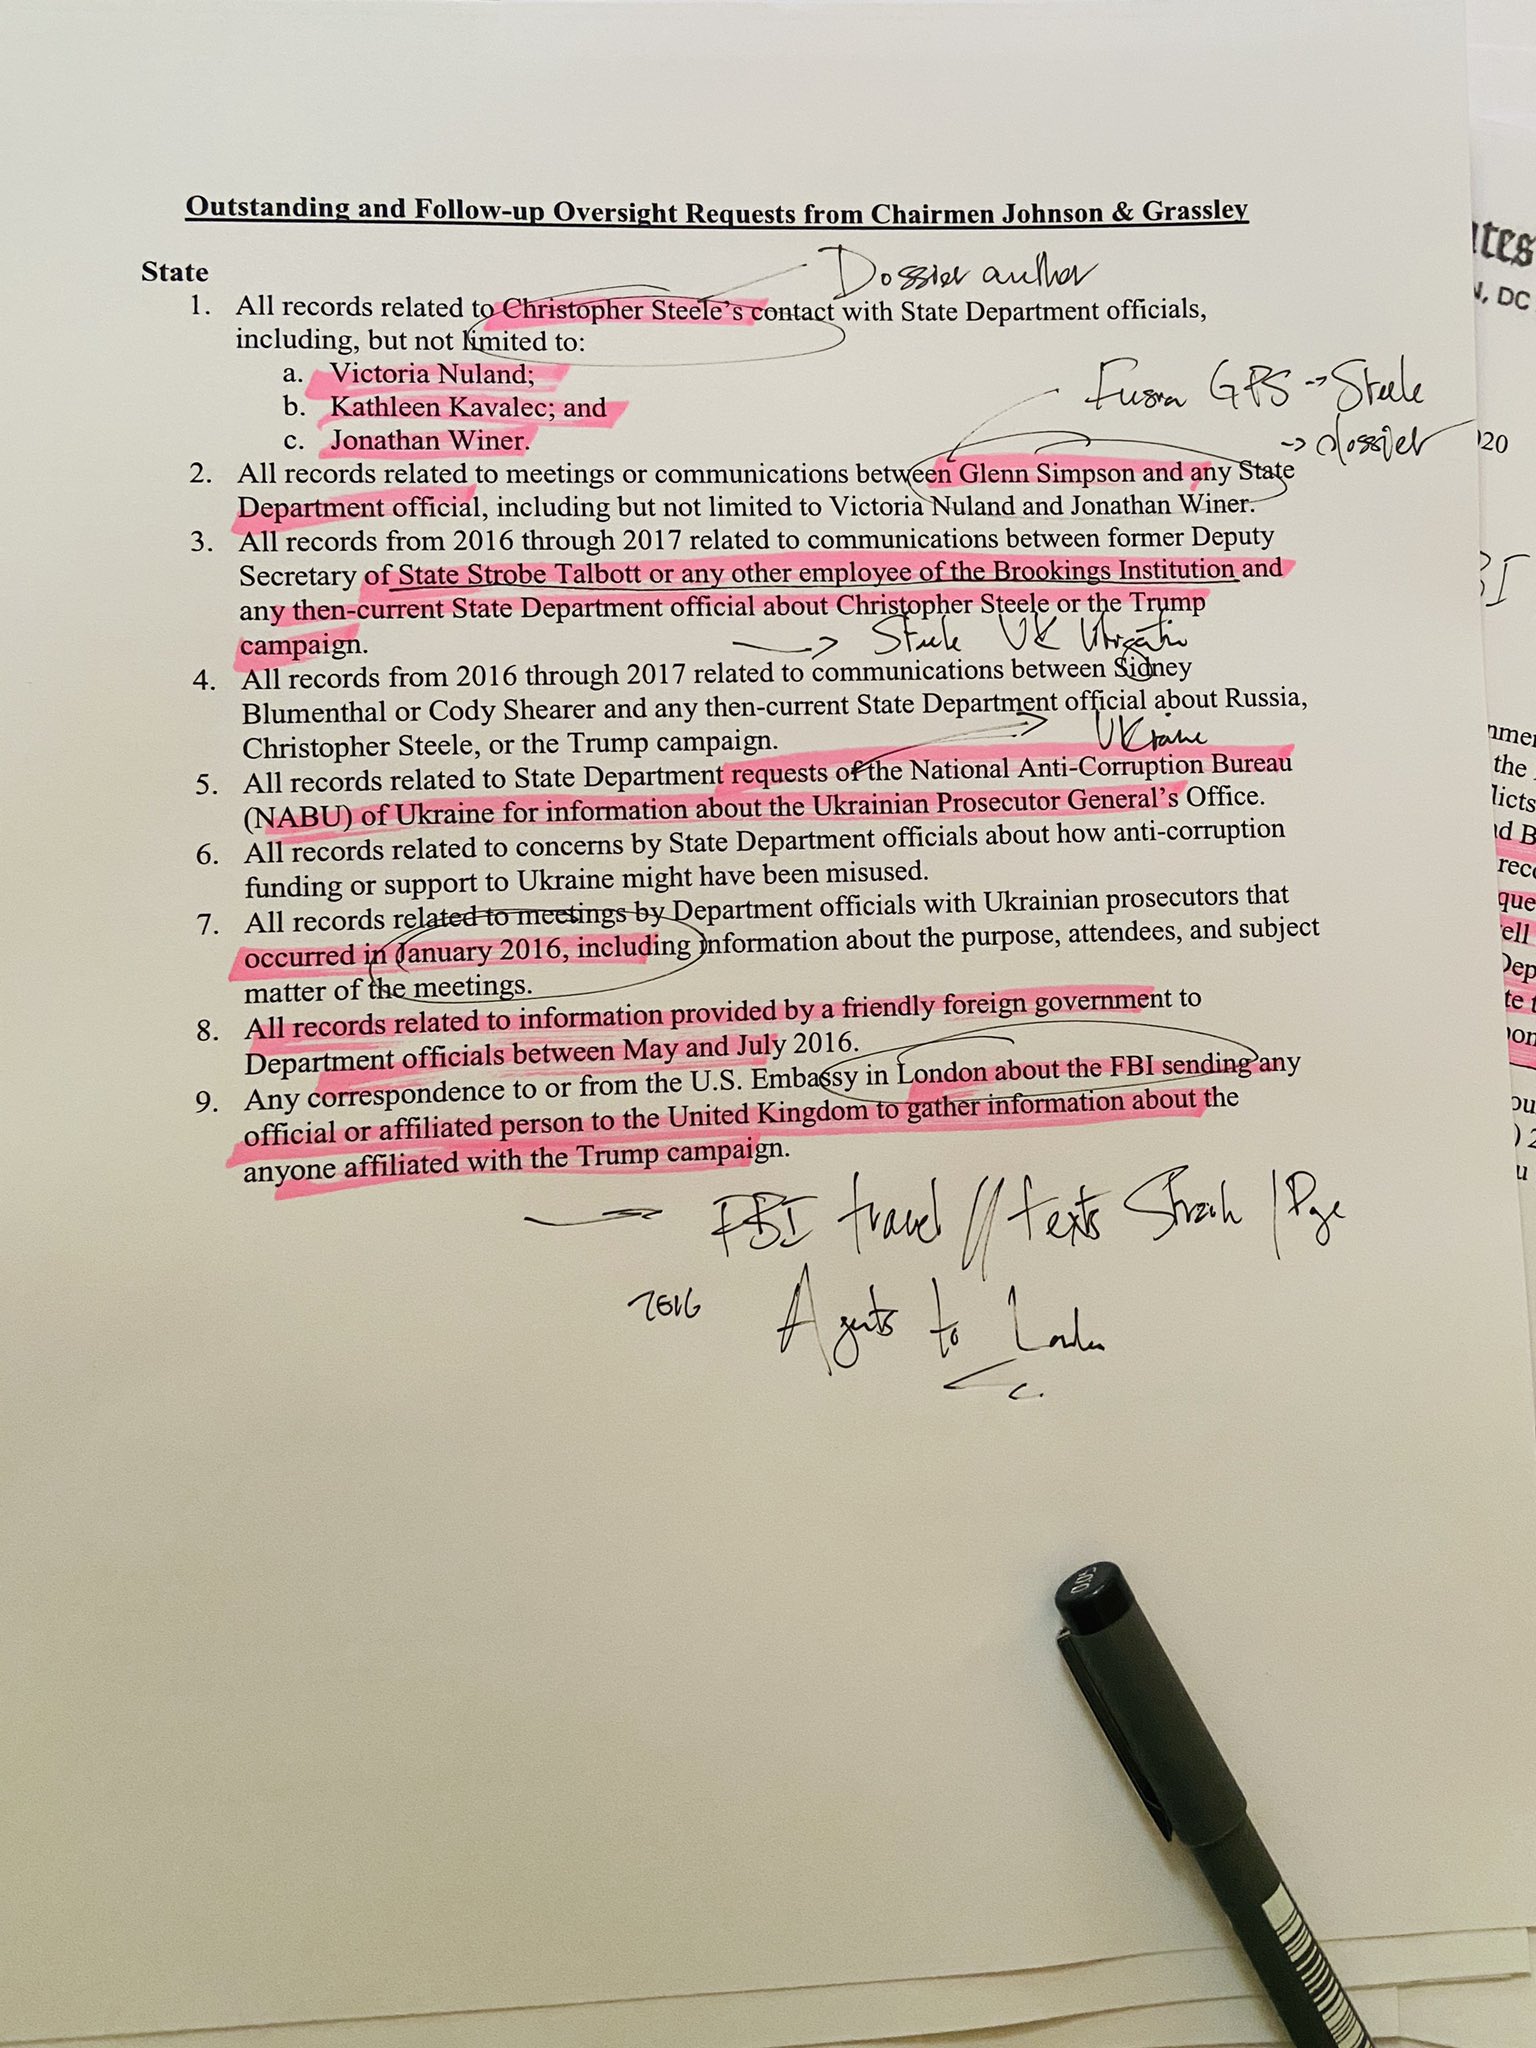 Outstanding and Follow-up Oversight Requests from Chairmen Johnson & Grassley
State
Dossier author
1. All records related to Christopher Steele's contact with State Department officials,
including, but not limited to:
a. Victoria Nuland;
b. Kathleen Kavalec; and
c. Jonathan Winer.
Fusion GPS → Steele
→ dossier
2. All records related to meetings or communications between Glenn Simpson and any State
Department official, including but not limited to Victoria Nuland and Jonathan Winer.
3. All records from 2016 through 2017 related to communications between former Deputy
Secretary of State Strobe Talbott or any other employee of the Brookings Institution and
any then-current State Department official about Christopher Steele or the Trump
campaign.
→ Steele UK litigation
4. All records from 2016 through 2017 related to communications between Sidney
Blumenthal or Cody Shearer and any then-current State Department official about Russia,
Christopher Steele, or the Trump campaign.
Ukraine
5. All records related to State Department requests of the National Anti-Corruption Bureau
(NABU) of Ukraine for information about the Ukrainian Prosecutor General's Office.
6. All records related to concerns by State Department officials about how anti-corruption
funding or support to Ukraine might have been misused.
7. All records related to meetings by Department officials with Ukrainian prosecutors that
occurred in January 2016, including information about the purpose, attendees, and subject
matter of the meetings.
8. All records related to information provided by a friendly foreign government to
Department officials between May and July 2016.
9. Any correspondence to or from the U.S. Embassy in London about the FBI sending any
official or affiliated person to the United Kingdom to gather information about the
anyone affiliated with the Trump campaign.
→ FBI travel // texts Strzok / Page
2016 Agents to London
ates
N, DC
020
BI
the
licts
nd B
Dep
0.05